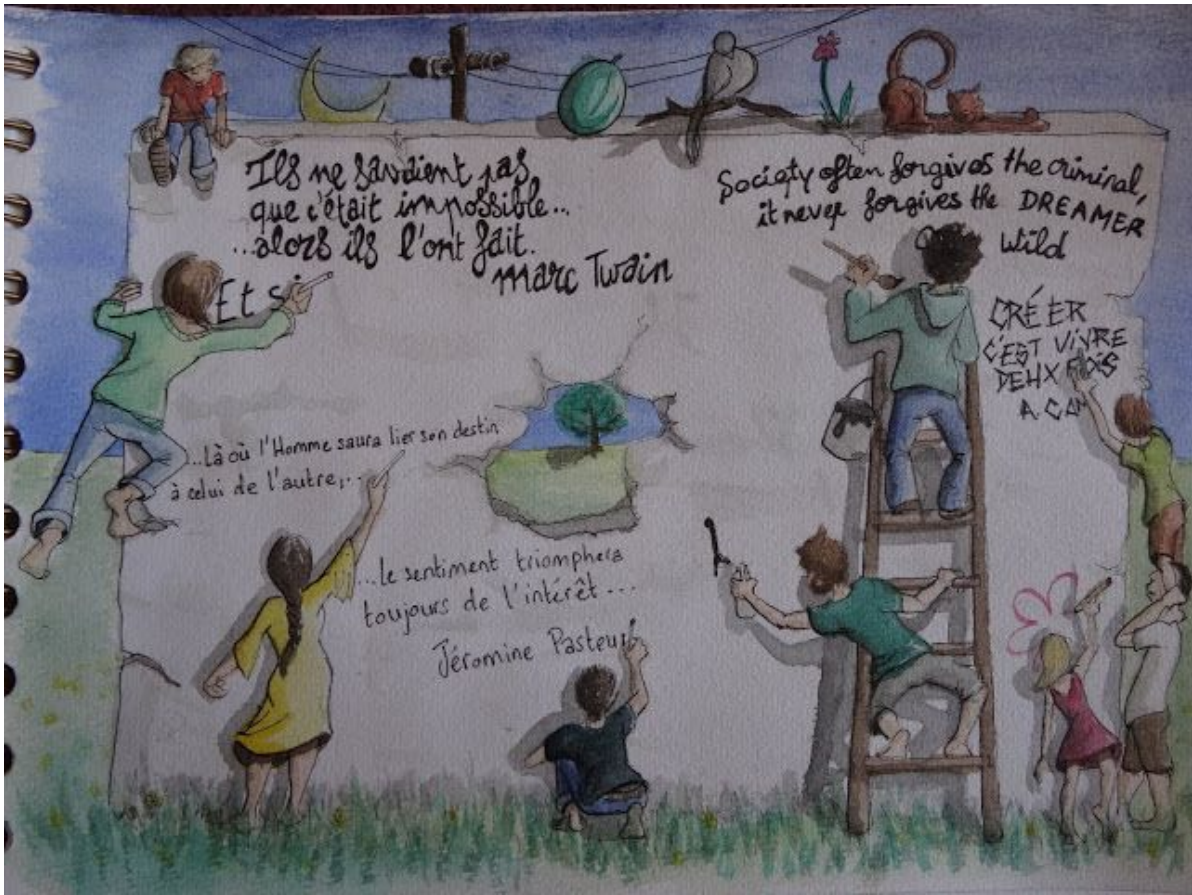 Ils ne savaient pas
que c'était impossible...
...alors ils l'ont fait.
Marc Twain
Et si
Society often forgives the criminal,
it never forgives the DREAMER
Wild
CRÉER
C'EST VIVRE
DEUX FOIS
A. CAM
...Là où l'Homme saura lier son destin
à celui de l'autre,...
...le sentiment triomphera
toujours de l'intérêt...
Jéromine Pasteur